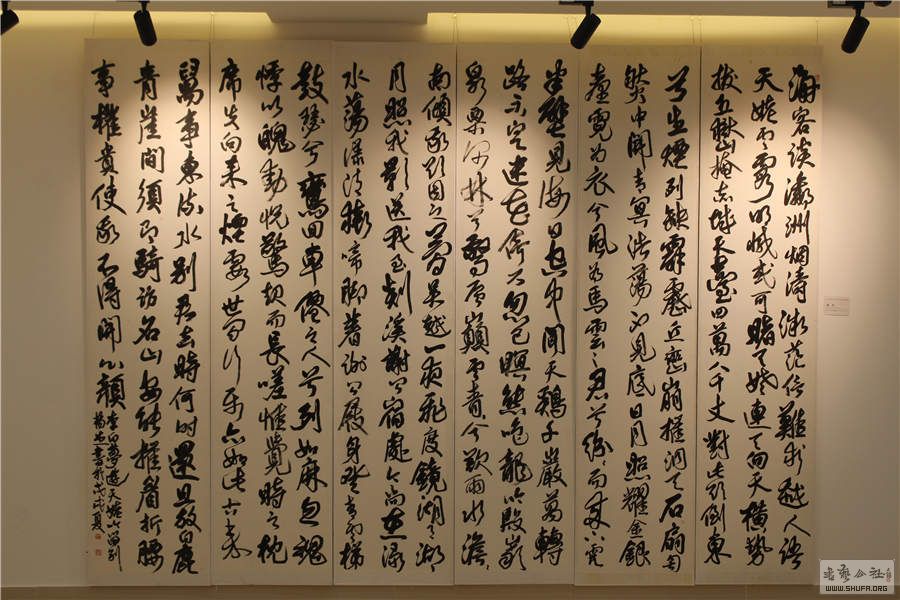 海客談瀛洲烟濤微茫信難求越人語
天姥雲霞明滅或可睹天姥連天向天橫勢
拔五嶽掩赤城天臺四萬八千丈對此欲倒東
兮生煙列缺霹靂丘巒崩摧洞天石扇訇
然中開青冥浩蕩不見底日月照耀金銀
臺霓為衣兮風為馬雲之君兮紛紛而來下虎
半壁見海日空中聞天鷄千巖萬轉
路不定迷花倚石忽已暝熊咆龍吟殷巖
泉栗深林兮驚層巔雲青青兮欲雨水澹
南傾我欲因之夢吳越一夜飛度鏡湖月湖
月照我影送我至剡溪謝公宿處今尚在淥
水蕩漾清猿啼脚著謝公屐身登青雲梯
鼓瑟兮鸞回車僊之人兮列如麻忽魂
悸以魄動怳驚起而長嗟惟覺時之枕
席失向來之煙霞世間行樂亦如此古來
萬事東流水別君去時何時還且放白鹿
青崖間須即騎訪名山安能摧眉折腰
事權貴使我不得開心顏
李白夢遊天姥吟留別
書於戊戌夏
WWW.SHUFA.ORG